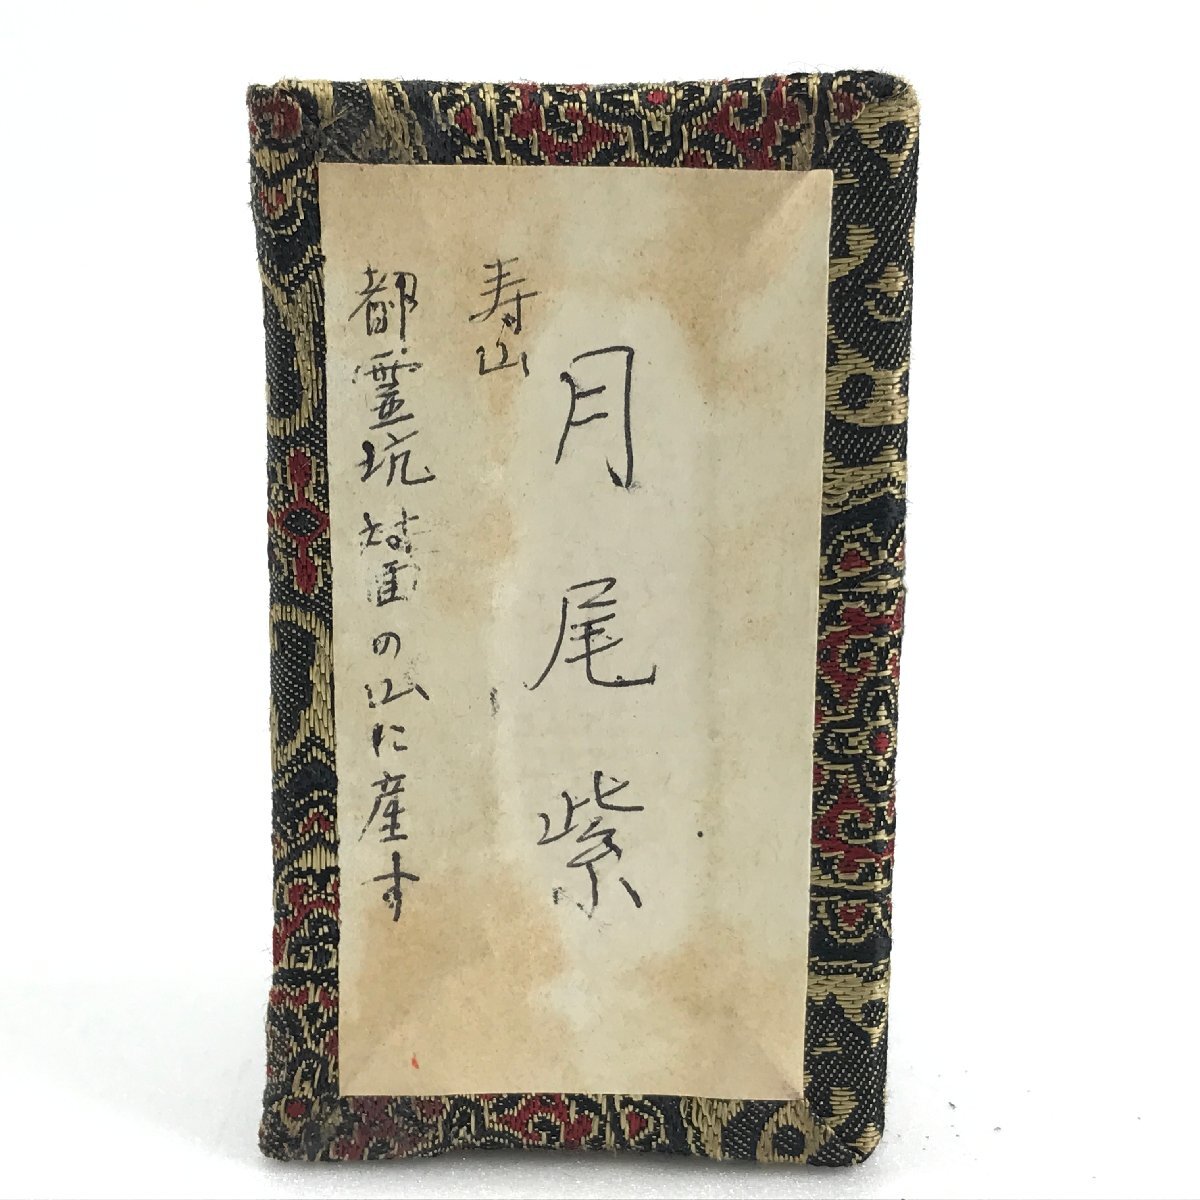 月尾紫
寿山
都霊坑対面の山に産す